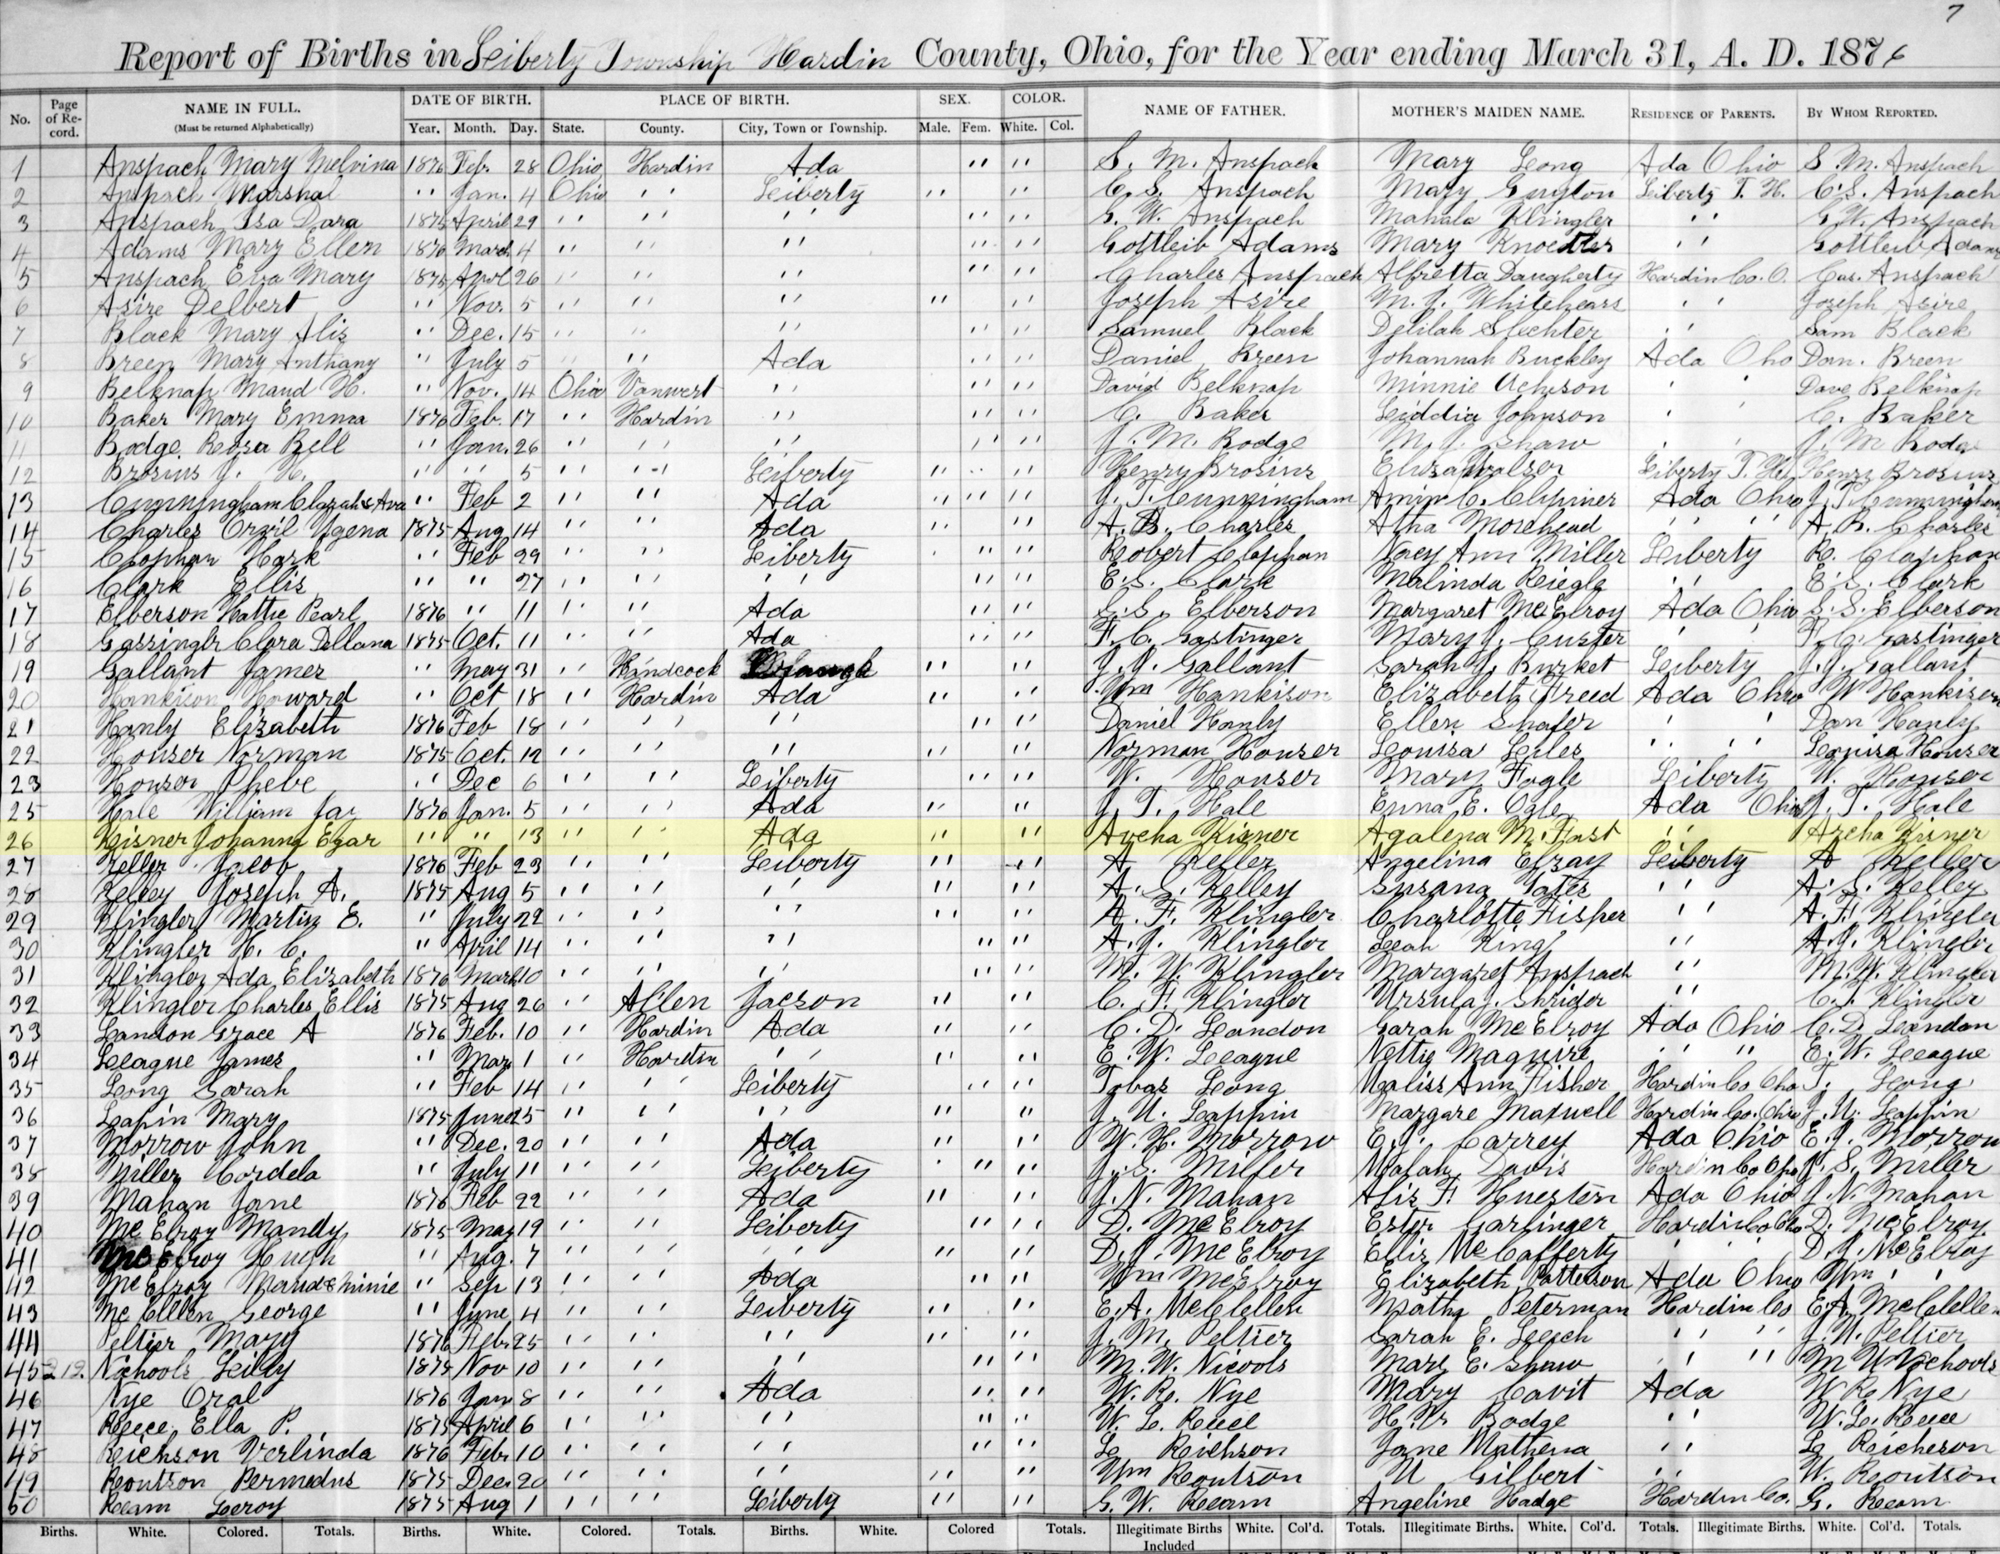 7
Report of Births in Leiberty Township Hardin County, Ohio, for the Year ending March 31, A. D. 1876
No. Page of Record. NAME IN FULL. (Must be returned Alphabetically) DATE OF BIRTH. Year. Month. Day. PLACE OF BIRTH. State. County. City, Town or Township. SEX. Male. Fem. COLOR. White. Col. NAME OF FATHER. MOTHER'S MAIDEN NAME. RESIDENCE OF PARENTS. BY WHOM REPORTED.
1 Anspach Mary Melvina 1876 Feb. 28 Ohio Hardin Ada " " S. M. Anspach Mary Long Ada Ohio S M. Anspach
2 Anspach Marshal " Jan. 4 Ohio " Leiberty " " C. S. Anspach Mary Guyton Leiberty T. H. C. S. Anspach
3 Anspach Isa Dora 1875 April 29 " " " " " G. W. Anspach Mahala Klingler " G W. Anspach
4 Adams Mary Ellen 1876 March 4 " " " " " Gottleib Adams Mary " Gottleib Adams
5 Anspach Eva Mary 1875 April 26 " " " " " Charles Anspach Alfretta Daugherty Hardin Co. O. Cas. Anspach
6 Asire Delbert " Nov. 5 " " " " " Joseph Asire M. J. Whitehears " Joseph Asire
7 Black Mary Alis " Dec. 15 " " " " " Samuel Black Delilah Slechter " Sam Black
8 Breen Mary Anthany " July 5 " " Ada " " Daniel Breen Johannah Buckley Ada Oho Dan. Breen
9 Belknap Maud H. " Nov. 14 Ohio Vanwert " " " David Belknap Minnie Acheson " " Dave Belknap
10 Baker Mary Emma 1876 Feb. 17 " Hardin " " " C. Baker Liddia Johnson " " C. Baker
11 Bodge Rosa Bell " Jan. 26 " " " " " J. M. Bodge M. J. Shaw " " J. M Bodge
12 Brosius J. H. " " 5 " " Leiberty " " Henry Brosius Eliza Walser Leiberty T. H. Henry Brosius
13 Cunningham " Feb 2 " " Ada " " " J. T. Cunningham C. Ada Ohio J. T. Cunningham
14 Charles Orvil Igena 1875 Aug 14 " " Ada " " A. B. Charles Atha Morehead " " A. B. Charles
15 Clophan Hark " Feb 29 " " Leiberty " " Robert Clophan Ann Miller Leiberty R. Clophan
16 Clark Ellis " " 27 " " " " " E. S. Clark Malinda Reigle " E. S. Clark
17 Elberson Hattie Pearl 1876 " 11 " " Ada " " S. S. Elberson Margaret McElroy Ada Ohio S. S. Elberson
18 Gassinger Clora Dellana 1875 Oct. 11 " " Ada " " F. C. Gastinger Mary J. Custer " " F. C. Gastinger
19 Gallant James " May 31 " Handcock " " J. J. Gallant Sarah J. Burket Leiberty J. J. Gallant
20 Hankison Howard " Oct 18 " Hardin Ada " " Wm Hankison Elizabeth Freed Ada Ohio W Hankison
21 Hanly Elizabeth 1876 Feb 18 " " " " " Daniel Hanly Ellen Shafer " " Dan Hanly
22 Houser Norman 1875 Oct. 12 " " " " " Norman Houser Louisa Liles " " Louisa Houser
23 Houser Phebe " Dec 6 " " Leiberty " " W. Houser Mary Fogle Leiberty W. Houser
25 Hale William Jay 1876 Jan. 5 " " Ada " " J. T. Hale Emma E. Ogle Ada Ohio J. T. Hale
26 Kisner Johanna Ezar " " 13 " " Ada " " Archa Kisner Agalena M. Fast " Archa Kisner
27 Keller Jacob 1876 Feb 23 " " Leiberty " " A Keller Angelina Elzay Leiberty A Keller
28 Kelley Joseph A. 1875 Aug 5 " " " " " A. S. Kelley Susana Yates " A. S. Kelley
29 Klingler Martin E. " July 22 " " " " " A. F. Klingler Charlotte Fisher " A. F. Klingler
30 Klingler H. C. " April 14 " " " " " A. J. Klingler Leah King " A. J. Klingler
31 Klingler Ada Elizabeth 1876 March 10 " " " " " M. W. Klingler Margaret Anspach " M. W. Klingler
32 Klingler Charles Ellis 1875 Aug 26 " Allen Jacson " " C. F. Klingler Ursula J. Shrider " C. F. Klingler
33 Landon Grace A 1876 Feb. 10 " Hardin Ada " " C. D. Landon Sarah McElroy Ada Ohio C. D. Landon
34 League James " Mar. 1 " Hardin " " " E. W. League Nettie Maguire " " E. W. League
35 Long Sarah " Feb 14 " " Leiberty " " Tobas Long Maliss Ann Fisher Hardin Co Oho T. Long
36 Lapin Mary 1875 June 25 " " " " " J. U. Lappin Margare Maxwell Hardin Co. Ohio J. U. Lappin
37 Morrow John " Dec. 20 " " Ada " " W. H. Morrow E. J. Carrey Ada Ohio E. J. Morrow
38 Miller Cordela " July 11 " " Leiberty " " J. S. Miller Davis Hardin Co Oho J. S. Miller
39 Mahan Jane 1876 Feb 22 " " Ada " " J. N. Mahan Alis F. Huesten Ada Ohio J. N. Mahan
40 McElroy Mandy 1875 May 19 " " Leiberty " " D. McElroy Ester Garlinger Hardin Co Oho D. McElroy
41 McElroy Hugh " Aug. 7 " " " " " D. J. McElroy Ellis McCafferty " " D. J. McElroy
42 McElroy Maud & Minie " Sep 13 " " Ada " " Wm McElroy Elizabeth Patterson Ada Ohio Wm " "
43 McCllen George " June 4 " " Leiberty " " E. A. McClellen Peterman Hardin Co E. A. McClellen
44 Peltier Mary 1876 Feb. 25 " " " " " J. M. Peltier Sarah E. Leech " " J. W. Peltier
45 212 Nichools Leilly 1875 Nov 10 " " " " " M. W. Nicols Mary E. Shaw " " M W Nichools
46 Nye Oral 1876 Jan 8 " " Ada " " W. R. Nye Mary Cavit Ada W. R. Nye
47 Reece Ella P. 1875 April 6 " " " " " W. L. Reece Bodge " W. L. Reece
48 Reichson Verlinda 1876 Feb. 10 " " " " " L. Reichson Jane Mathena " L. Reicheson
49 Routson Permedus 1875 Dec. 20 " " " " " Wm Routson U Gilbert " W. Routson
50 Ream Leroy 1875 Aug 1 " " Leiberty " " G. W. Ream Angeline Hadge Hardin Co. G. Ream
Births. White. Colored. Totals. Births. White. Colored. Totals. Births. White. Colored Totals. Illegitimate Births Included White. Col'd. Totals. Illegitimate Births. White. Col'd. Totals. Illegitimate Births. White. Col'd. Totals.